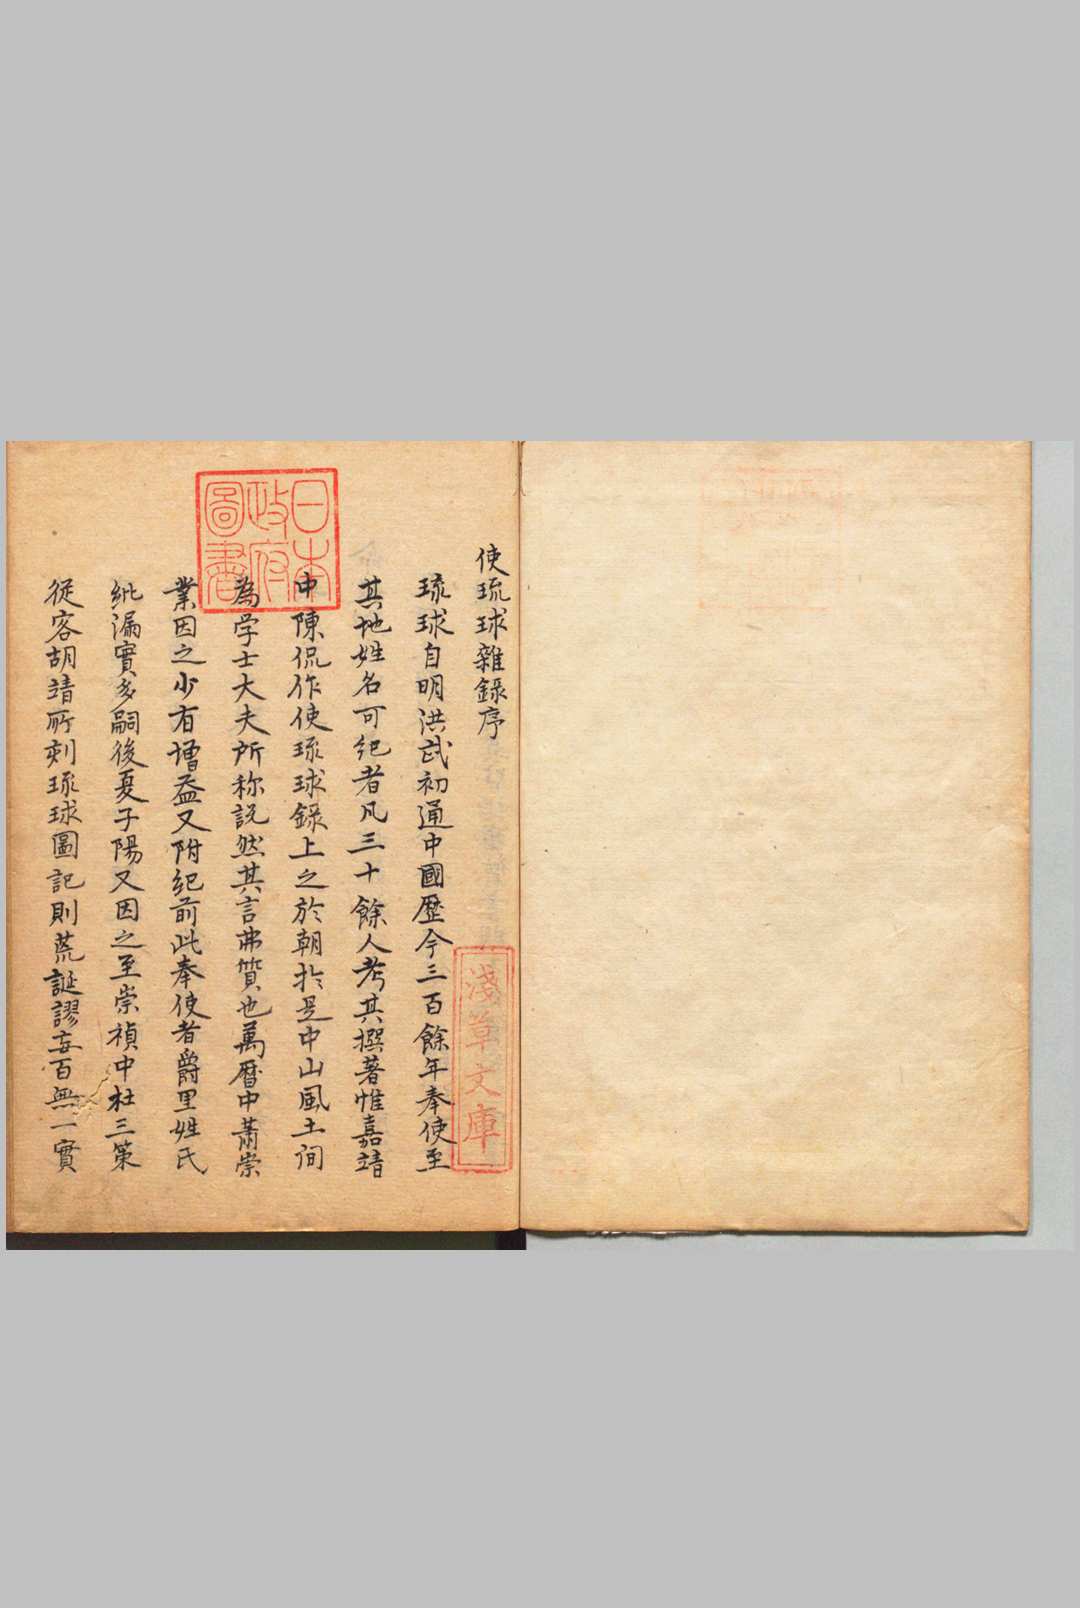 使琉球雜錄序
琉球自明洪武初通中國歷今三百餘年奉使至
其地姓名可紀者凡三十餘人考其撰著惟嘉靖
中陳侃作使琉球錄上之於朝扵是中山風土间
為学士大夫所称説然其言弗質也萬曆中蕭崇
業因之少有增益又附紀前此奉使者爵里姓氏
紕漏實多嗣後夏子陽又因之至崇禎中杜三策
從客胡靖所刻琉球圖記則荒誕謬妄百無一實
日本
政府
圖書
淺草文庫